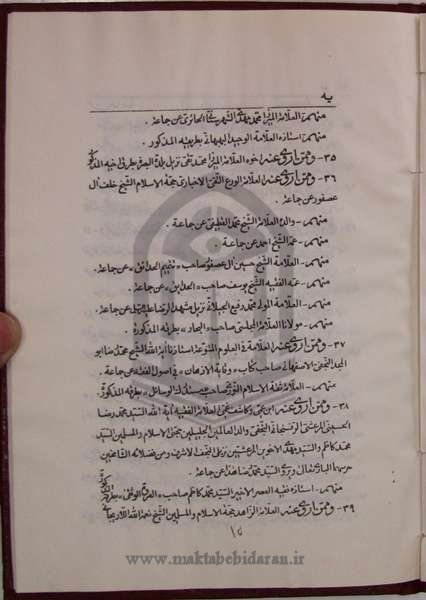 يه
منهم: العلامة الميرزا محمد مهدي الشهرستاني الحائري عن جماعة.
منهم: استاذه العلامة الوحيد البهبهاني بطريقه المذكور.
٣٥- وممن اروي عنه: اخوه العلامة الميرزا محمد تقي نزيل بلدة بطرقه
٣٦- وممن اروي عنه: العلامة الورع التقي الاخباري حجة الاسلام الشيخ خلف آل
عصفور عن جماعة.
منهم: والده العلامة الشيخ عن جماعة.
منهم: عمه الشيخ احمد عن جماعة.
منهم: العلامة الشيخ حسين آل عصفور صاحب عن جماعة.
منهم: عمه الفقيه الشيخ يوسف صاحب «الحدائق» عن جماعة.
منهم: العلامة المولى محمد رفيع الجيلاني نزيل مشهد الرضا عن جماعة.
منهم: مولانا العلامة المجلسي صاحب «البحار» بطرقه المذكورة.
٣٧- وممن اروي عنه: العلامة في العلوم المتنوعة استاذنا آية الله الشيخ محمد رضا ابو
المجد النجفي الاصفهاني صاحب كتاب «وقاية الاذهان» في اصول الفقه عن جماعة.
منهم: العلامة ثقة الاسلام النوري صاحب «مستدرك الوسائل» بطرقه المذكورة.
٣٨- وممن اروي عنه: ابن عمي وكاشف غمي العلامة الفقيه آية الله السيد محمد رضا
الحسيني المرعشي الرفسنجاني النجفي والد العالمين الجليلين حجتي الاسلام والمسلمين السيد
محمد كاظم والسيد مهدي الاخوين المرعشيين نزيلي النجف الاشرف ومن فضلائه
عن جماعة.
منهم: استاذه فقيه العصر الاخير السيد محمد كاظم صاحب «العروة الوثقى»
٣٩- وممن اروي عنه: العلامة الزاهد حجة الاسلام والمسلمين الشيخ نعمة الله
١٥
www.maktabebidaran.ir